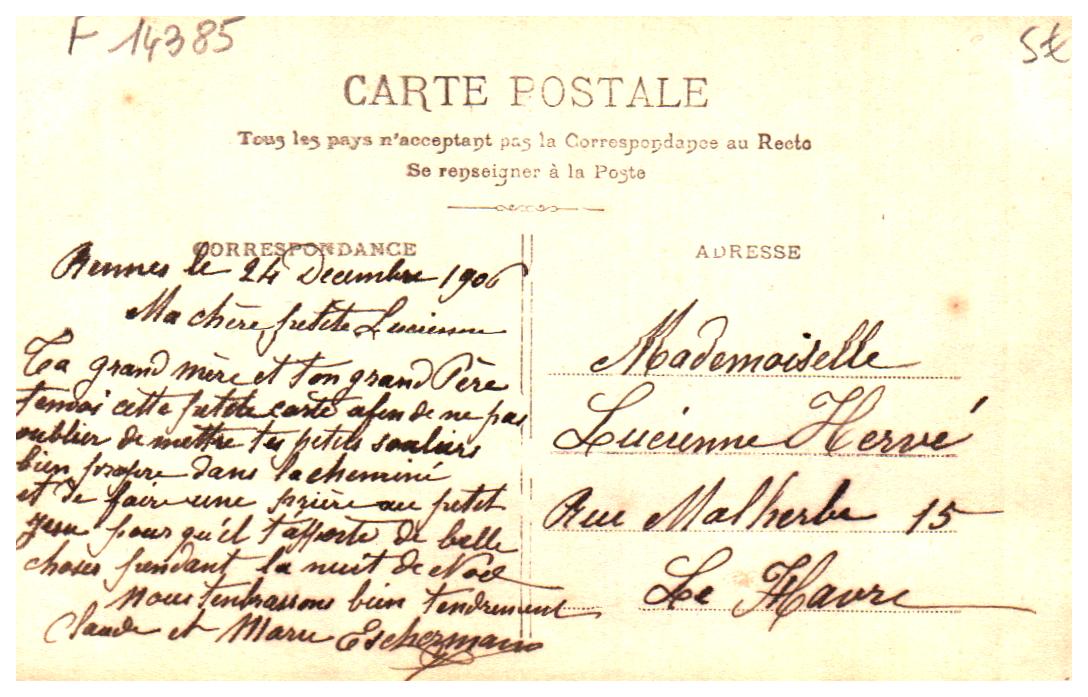 F 14385
5€
CARTE POSTALE
Tous les pays n'acceptant pas la Correspondance au Recto
Se renseigner à la Poste
CORRESPONDANCE
Rennes le 24 Decembre 1906
Ma chère petite Lucienne
Ta grand mère et ton grand Père
t'envoi cette petite carte afin de ne pas
oublier de mettre tes petits souliers
bien propre dans la cheminé
et de faire une prière au petit
Jesu pour qu'il t'apporte de belle
choses pendant la nuit de Noël
Nous t'enbrassons bien tendrement
Claude et Marie Eschermann
ADRESSE
Mademoiselle
Lucienne Hervé
Rue Malherbe 15
Le Havre